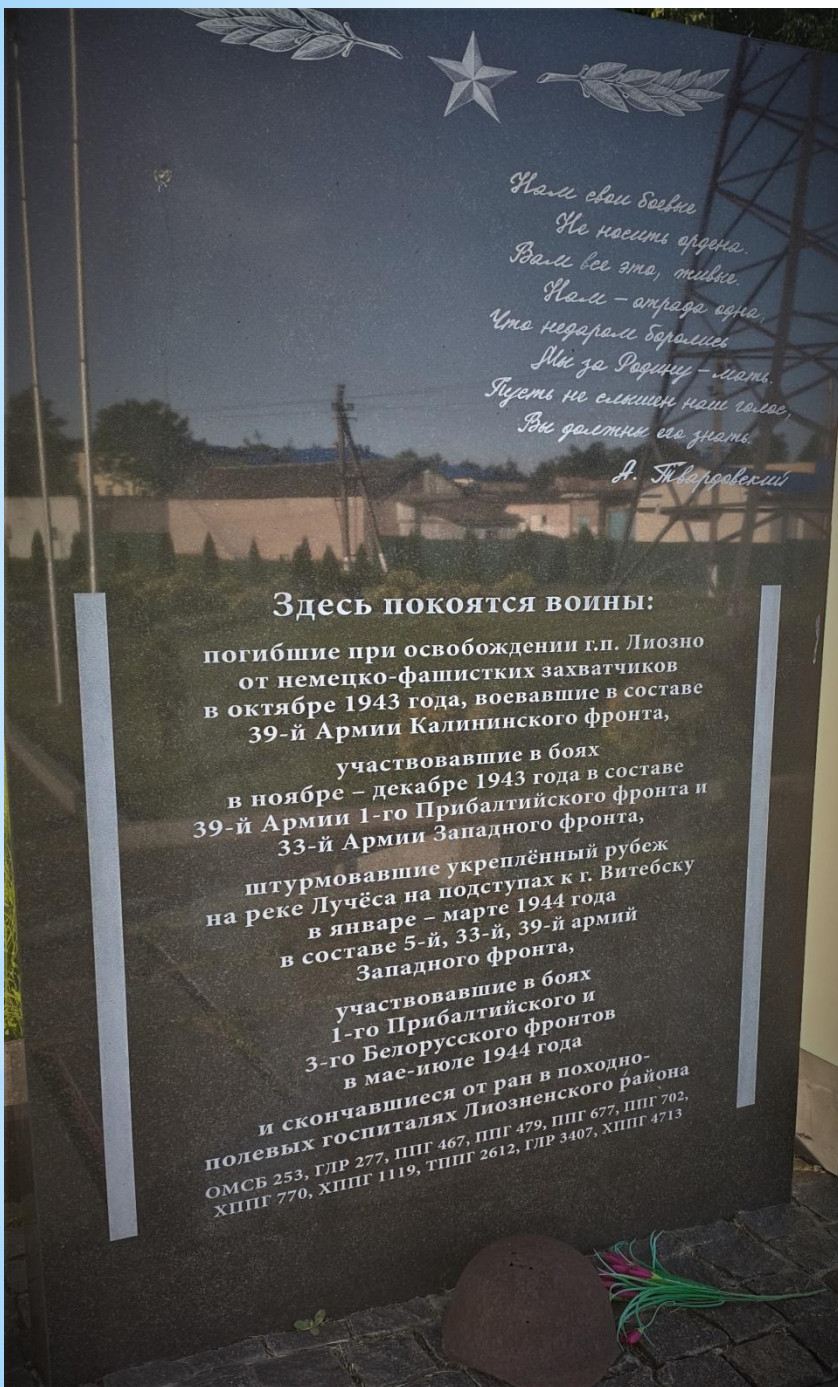 Нам свои боевые
Не носить ордена.
Вам все это, живые.
Нам – отрада одна,
Что недаром боролись
Мы за Родину – мать.
Пусть не слышен наш голос,
Вы должны его знать.
А. Твардовский
Здесь покоятся воины:
погибшие при освобождении г.п. Лиозно
от немецко-фашистких захватчиков
в октябре 1943 года, воевавшие в составе
39-й Армии Калининского фронта,
участвовавшие в боях
в ноябре – декабре 1943 года в составе
39-й Армии 1-го Прибалтийского фронта и
33-й Армии Западного фронта,
штурмовавшие укреплённый рубеж
на реке Лучёса на подступах к г. Витебску
в январе – марте 1944 года
в составе 5-й, 33-й, 39-й армий
Западного фронта,
участвовавшие в боях
1-го Прибалтийского и
3-го Белорусского фронтов
в мае-июле 1944 года
и скончавшиеся от ран в походно-
полевых госпиталях Лиозненского района
ОМСБ 253, ГЛР 277, ППГ 467, ППГ 479, ППГ 677, ППГ 702,
ХППГ 770, ХППГ 1119, ТППГ 2612, ГЛР 3407, ХППГ 4713